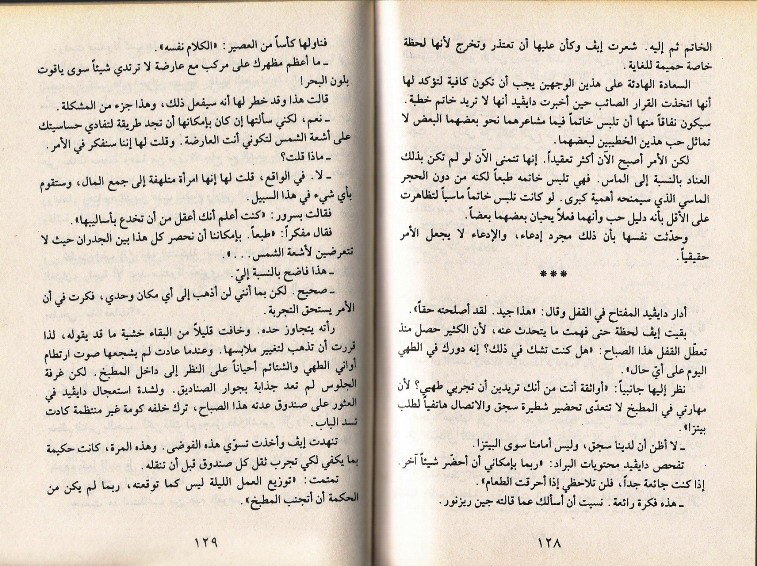 الخاتم ثم إليه. شعرت إيڤ وكأن عليها أن تعتذر وتخرج لأنها لحظة
خاصة حميمة للغاية.
السعادة الهادئة على هذين الوجهين يجب أن تكون كافية لتؤكد لها
أنها اتخذت القرار الصائب حين أخبرت دايڤيد أنها لا تريد خاتم خطبة.
سيكون نفاقاً منها أن تلبس خاتماً فيما مشاعرهما نحو بعضهما البعض لا
تماثل حب هذين الخطيبين لبعضهما.
لكن الأمر أصبح الآن أكثر تعقيداً. إنها تتمنى الآن لو لم تكن بذلك
العناد بالنسبة إلى الماس. فهي تلبس خاتمه طبعاً لكنه من دون الحجر
الماسي الذي سيمنحه أهمية كبرى. لو كانت تلبس خاتماً ماسياً لتظاهرت
على الأقل بأنه دليل حب وأنهما فعلاً يحبان بعضهما بعضاً.
وحدثت نفسها بأن ذلك مجرد إدعاء، والإدعاء لا يجعل الأمر
حقيقياً.
***
أدار دايڤيد المفتاح في القفل وقال: «هذا جيد. لقد أصلحته حقاً».
بقيت إيڤ لحظة حتى فهمت ما يتحدث عنه، لأن الكثير حصل منذ
تعطّل القفل هذا الصباح: «هل كنت تشك في ذلك؟ إنه دورك في الطهي
اليوم على أيّ حال».
نظر إليها جانبياً: «أواثقة أنت من أنك تريدين أن تجربي طهيي؟ لأن
مهارتي في المطبخ لا تتعدّى تحضير شطيرة سجق والاتصال هاتفياً لطلب
بيتزا».
ـ لا أظن أن لدينا سجق، وليس أمامنا سوى البيتزا.
تفحص دايڤيد محتويات البراد: «ربما بإمكاني أن أحضّر شيئاً آخر.
إذا كنت جائعة جداً، فلن تلاحظي إذا أحرقت الطعام».
ـ هذه فكرة رائعة. نسيت أن أسألك عما قالته جين ريزنور.
١٢٨
فناولها كأساً من العصير: «الكلام نفسه».
ـ ما أعظم مظهرك على مركب مع عارضة لا ترتدي شيئاً سوى ياقوت
بلون البحر!
قالت هذا وقد خطر لها أنه سيفعل ذلك، وهذا جزء من المشكلة.
ـ نعم، لكني سألتها إن كان بإمكانها أن تجد طريقة لتفادي حساسيتك
على أشعة الشمس لتكوني أنت العارضة. وقلت لها إننا سنفكر في الأمر.
ـ ماذا قلت؟
ـ لا. في الواقع، قلت لها إنها امرأة متلهفة إلى جمع المال، وستقوم
بأي شيء في هذا السبيل.
فقالت بسرور: «كنت أعلم أنك أعقل من أن تخدع بأساليبها».
فقال مفكراً: «طبعاً. بإمكاننا أن نحصر كل هذا بين الجدران حيث لا
تتعرضين لأشعة الشمس...».
ـ هذا فاضح بالنسبة إليّ.
ـ صحيح. لكن بما أنني لن أذهب إلى أي مكان وحدي، فكرت في أن
الأمر يستحق التجربة.
رأته يتجاوز حده. وخافت قليلاً من البقاء خشية ما قد يقوله، لذا
قررت أن تذهب لتغيير ملابسها. وعندما عادت لم يشجعها صوت ارتطام
أواني الطهي والشتائم أحياناً على النظر إلى داخل المطبخ. لكن غرفة
الجلوس لم تعد جذابة بجوار الصناديق. ولشدة استعجال دايڤيد في
العثور على صندوق عدته هذا الصباح، ترك خلفه كومة غير منتظمة كادت
تسد الباب.
تنهدت إيڤ وأخذت تسوّي هذه الفوضى. وهذه المرة، كانت حكيمة
بما يكفي لكي تجرب ثقل كل صندوق قبل أن تنقله.
تمتمت: «توزيع العمل الليلة ليس كما توقعته، ربما لم يكن من
الحكمة أن أتجنب المطبخ».
١٢٩